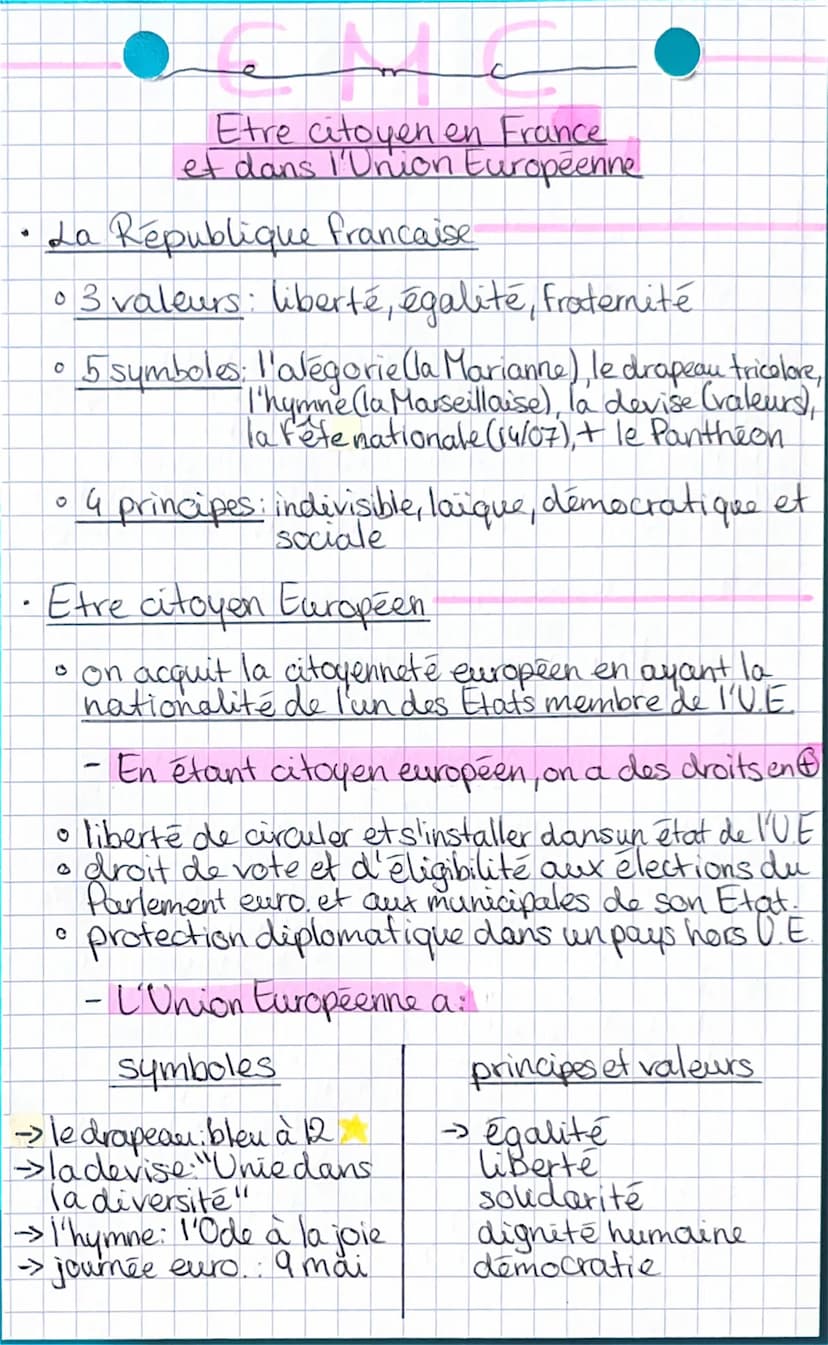 E M C
e m c
Etre citoyen en France
et dans l'Union Européenne
• La République francaise
∘ 3 valeurs : liberté, égalité, fraternité
∘ 5 symboles: l'alégorie (la Marianne), le drapeau tricolore,
l'hymne (la Marseillaise), la devise (valeurs),
la fête nationale (14/07), + le Panthéon
∘ 4 principes : indivisible, laïque, démocratique et
sociale
• Etre citoyen Européen
∘ on acquit la citoyenneté européen en ayant la
nationalité de l'un des Etats membre de l'U.E.
- En étant citoyen européen, on a des droits en ⊕
∘ liberté de circuler et s'installer dans un état de l'U.E
∘ droit de vote et d'éligibilité aux élections du
Parlement euro. et aux municipales de son Etat.
∘ protection diplomatique dans un pays hors U.E.
- L'Union Européenne a :
symboles
→ le drapeau : bleu à 12 ⭐
→ la devise : "Unie dans
la diversité"
→ l'hymne : l'Ode à la joie
→ journée euro. : 9 mai
principes et valeurs
→ égalité
liberté
solidarité
dignité humaine
démocratie